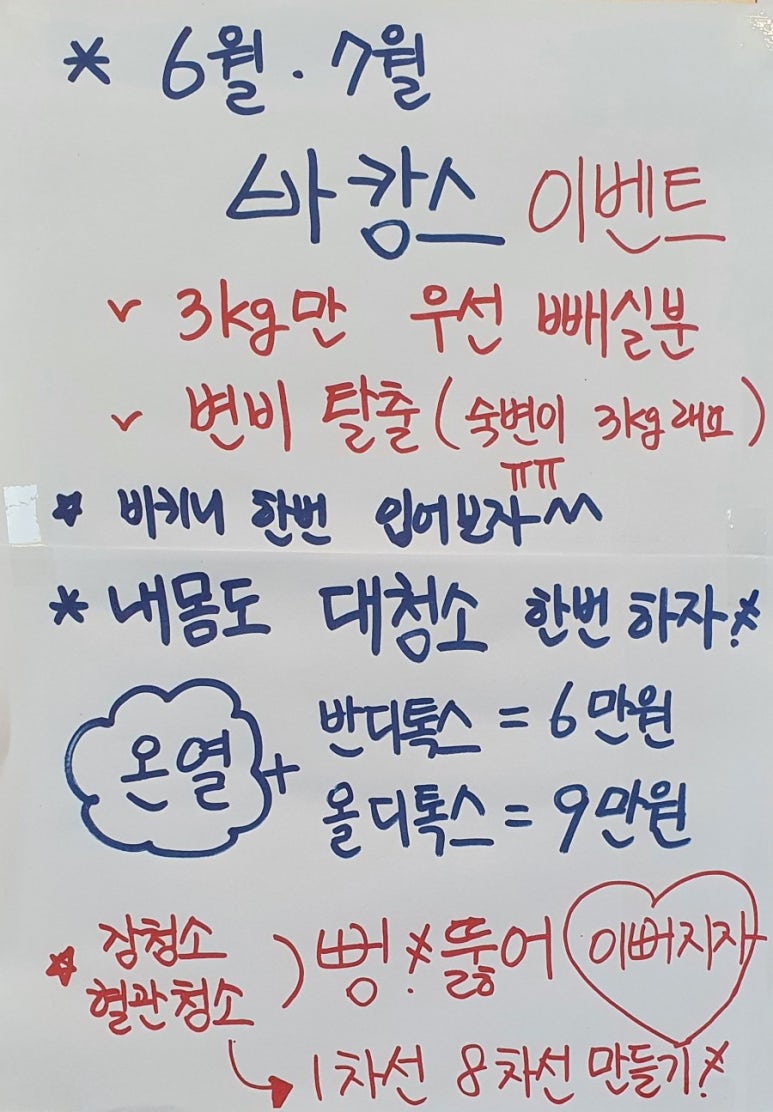 * 6월 · 7월
바캉스 이벤트
v 3kg만 우선 빼실분
v 변비 탈출 (숙변이 3kg래요)
ㅠㅠ
☆ 바키니 한번 입어보자^^
* 내몸도 대청소 한번 하자!
온열 + 반디톡스 = 6만원
올디톡스 = 9만원
☆ 장청소
혈관청소 ) 뻥! 뚫어 이뻐지자
→ 1차선 8차선 만들기!